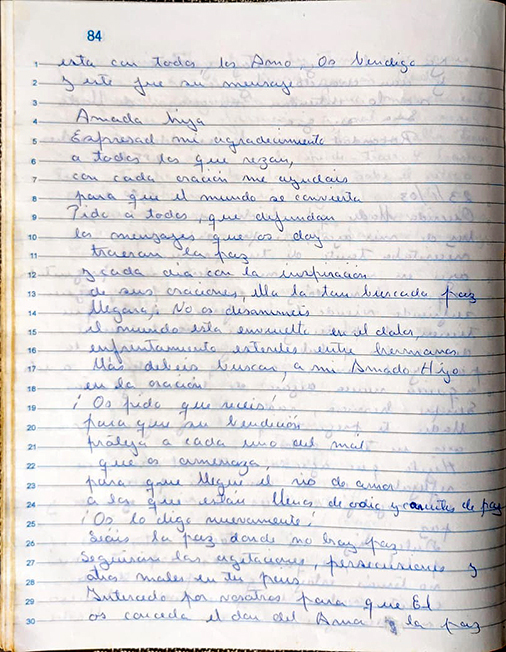 84
1 esta con todos, los Amo, Os bendigo
2 y este fue su mensaje
3
4 Amada hija
5 Expresad mi agradecimiento
6 a todos los que rezan,
7 con cada oración me ayudais
8 para que el mundo se convierta
9 Pido a todos, que difundan
10 los mensajes que os doy
11 traeran la paz
12 y cada dia con la inspiración
13 de sus oraciones, ella la tan buscada paz
14 llegara, No os desanimeis
15 el mundo está envuelto en el dolor,
16 enfrentamiento entre hermanos
17 Mas debeis buscar, a mi Amado Hijo
18 en la oración
19 ¡Os pido que receis!
20 para que su bendición
21 proteja a cada uno del mal
22 que os amenaza,
23 para que llegue el rio de amor
24 a los que están llenos de odio y de paz
25 ¡Os lo digo nuevamente!
26 Seáis la paz donde no hay paz
27 Seguiran las agitaciones, persecuciones y
28 otros males en tu pais
29 Intercedo por vosotros para que El
30 os conceda el don del Amor la paz